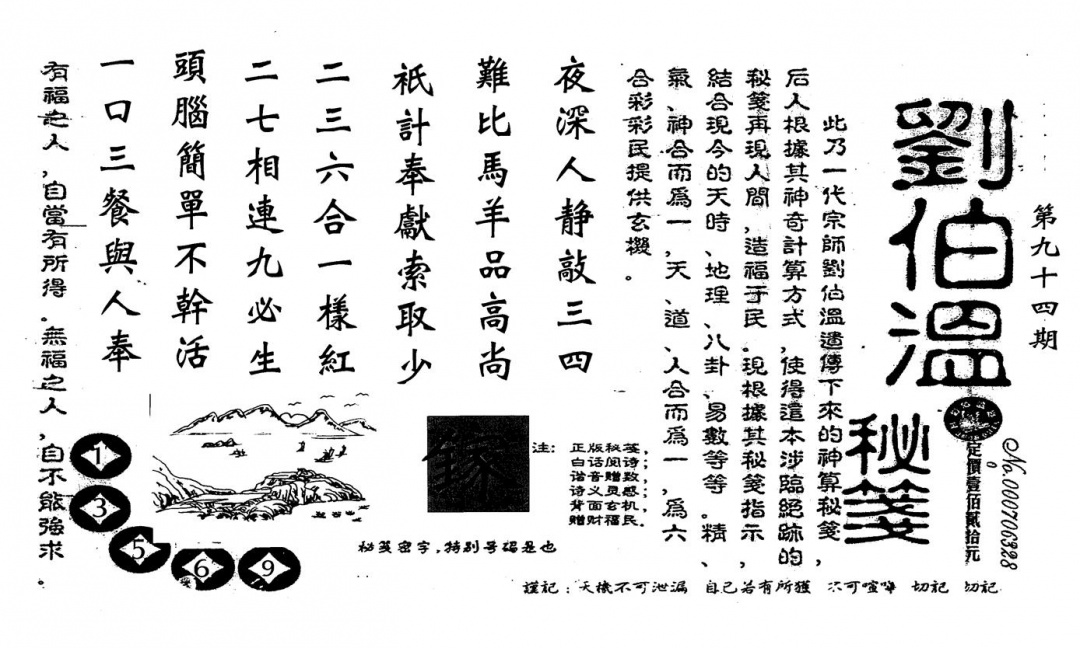 第九十四期
劉伯溫
秘箋
No.0001706328
定價壹佰貳拾元
此乃一代宗師劉伯溫遺傳下來的神算秘箋，
后人根據其神奇計算方式，使得這本涉臨絕跡的
秘箋再現人間，造福于民。現根據其秘箋指示
結合現今的天時、地理、八卦、易數等等。精、
氣、神合而爲一，天、道、人合而爲一，爲六
合彩彩民提供玄機。
夜深人静敲三四
難比馬羊品高尚
祇計奉獻索取少
二三六合一樣紅
二七相連九必生
頭腦簡單不幹活
一口三餐與人奉
有福之人，自當有所得。無福之人，自不能強求。
注：正版秘笺，
白话阅诗；
谐音赠致，
诗义灵感；
背面玄机，
赠财福民。
鎵
秘笺密字，特别号码是也
1
3
5
6
9
謹記：天機不可泄漏 自己若有所獲 不可喧嘩 切記 切記